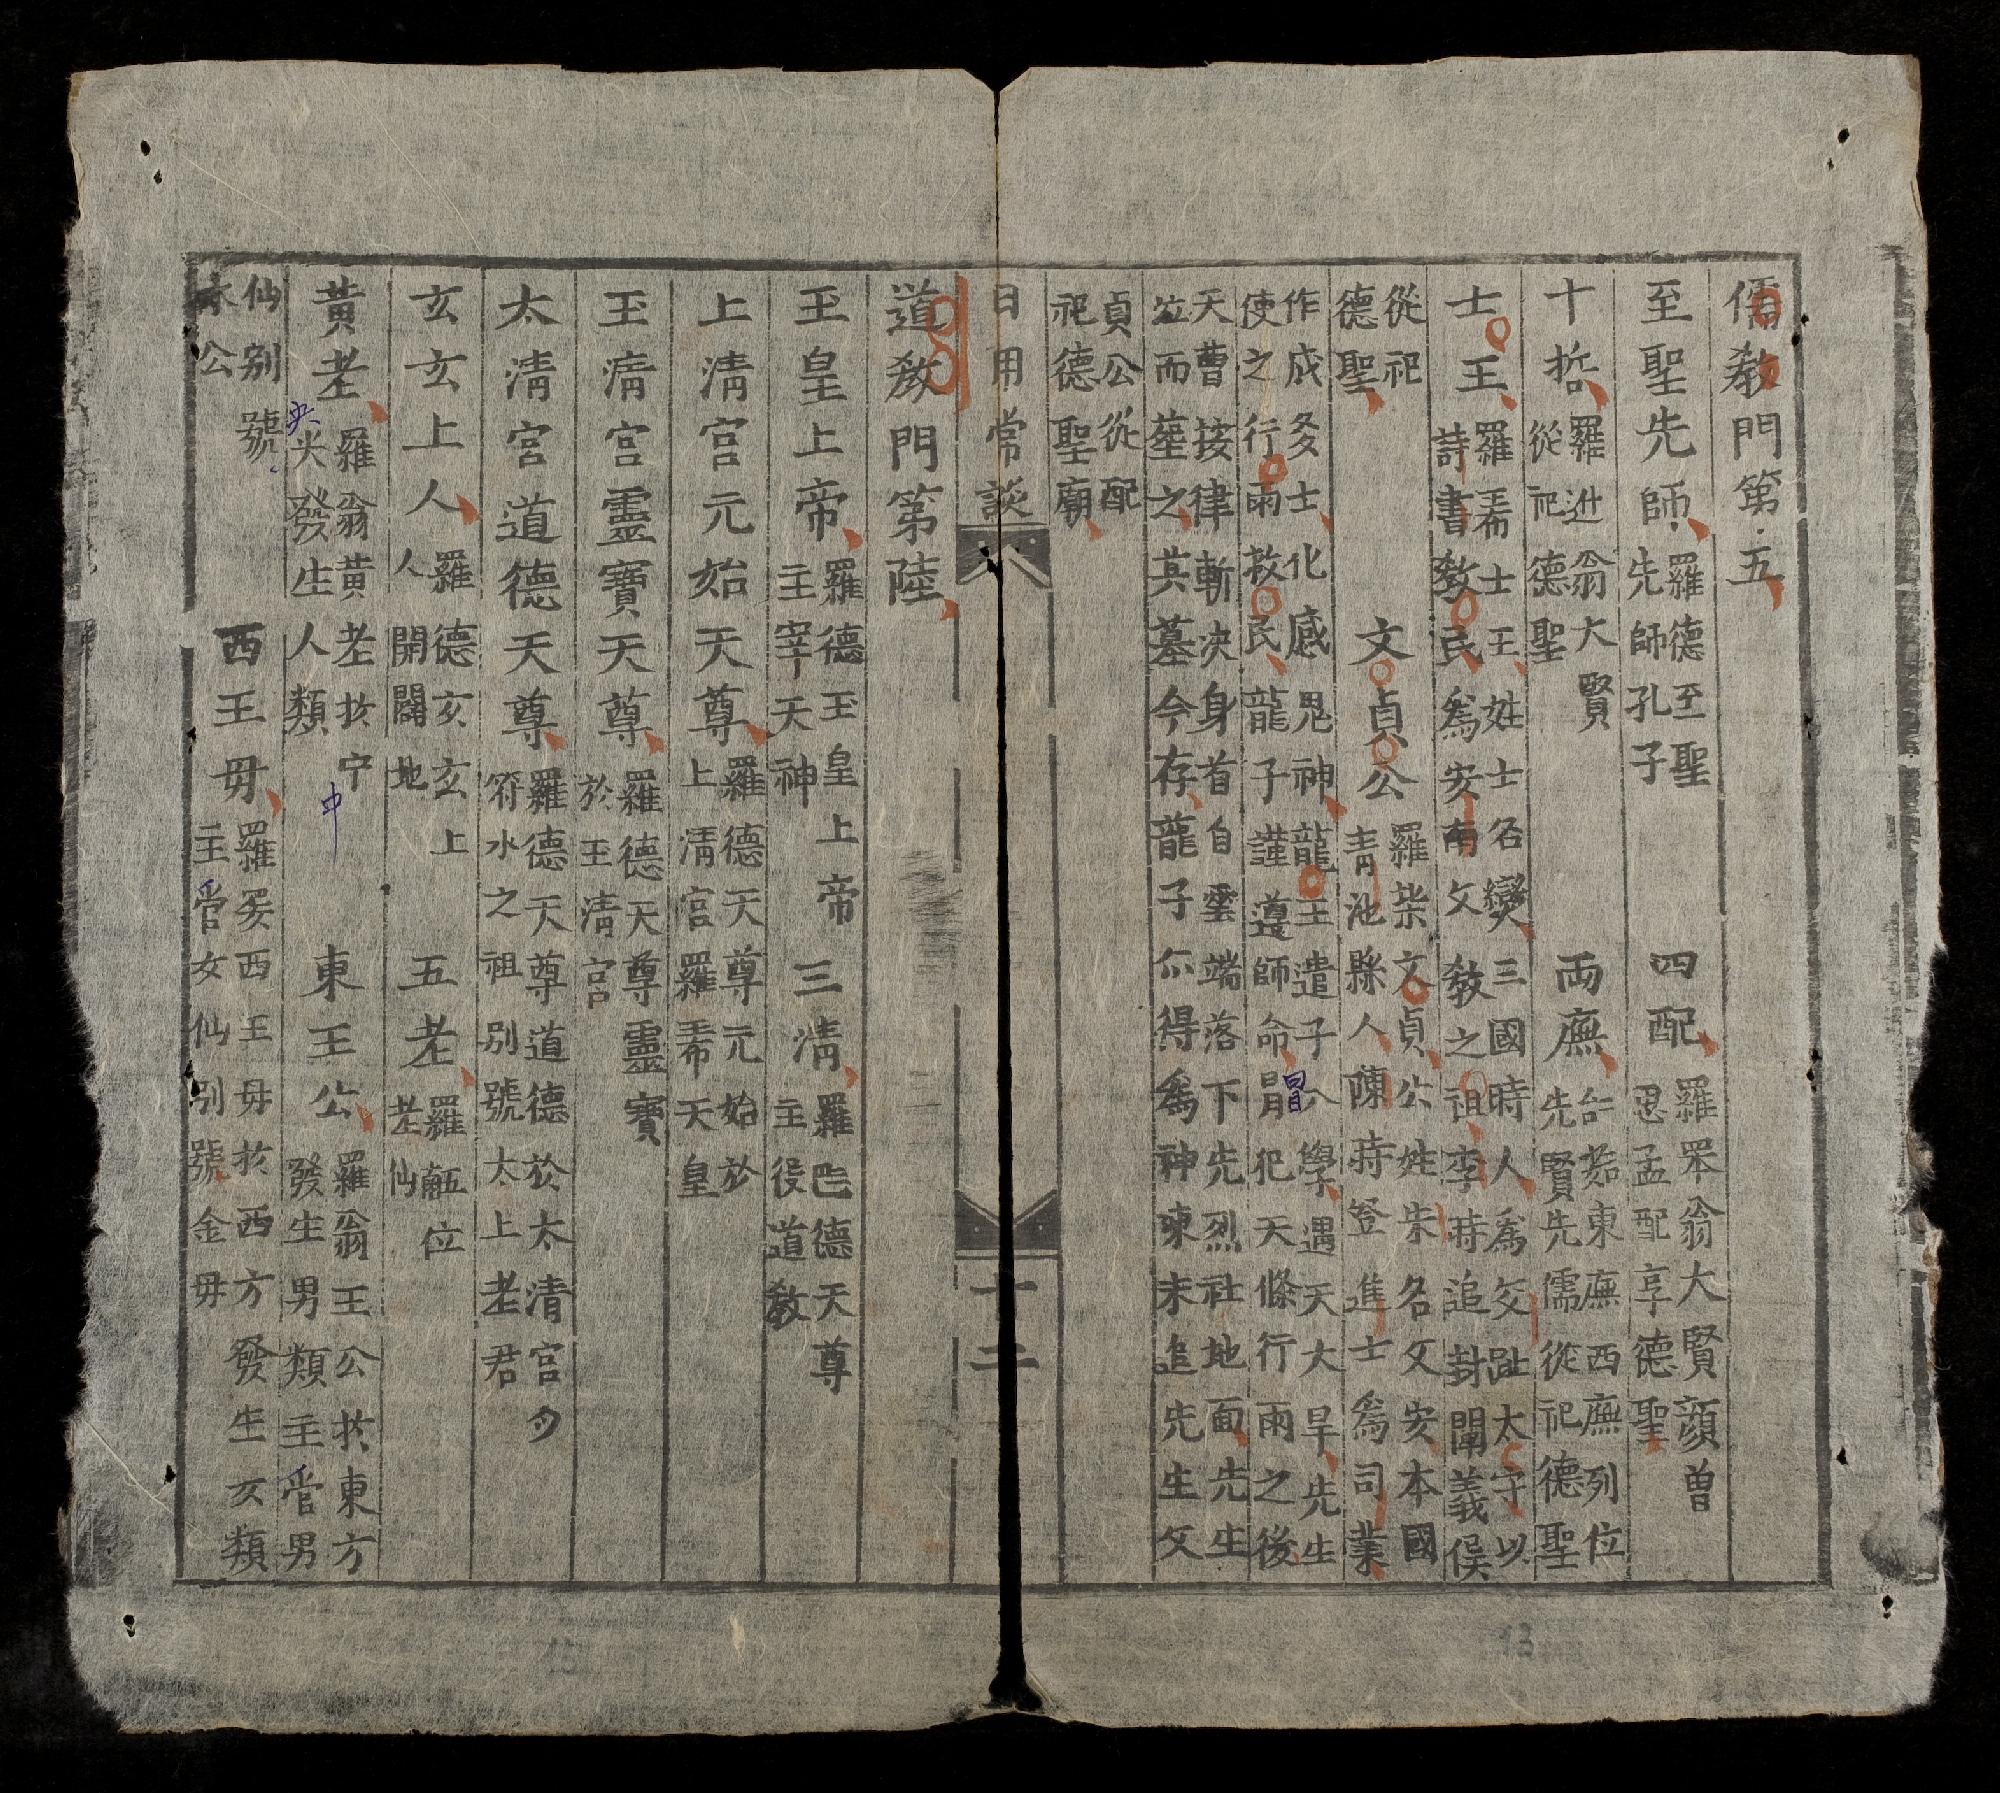 儒教門第五
至聖先師羅德至聖先師孔子 四配羅罙翁大賢顔曽思孟配享德聖
十哲羅進翁大賢從祀德聖 両廡台茹東廡西廡列位先賢先儒從祀德聖
士王羅希士王姓士名燮三國時人爲交趾太守以詩書教民爲安南文教之祖李時追封闡義侯
從祀德聖 文貞公羅柴文貞公姓朱名文安本國青池縣人陳時登進士爲司業
作成多士化感鬼神龍王遣子入學遇天大旱先生使之行雨救民龍子謹遵師命冒犯天條行雨之後
天曹按律斬决身首自雲端落下先烈社地面先生並而葬之其墓今存龍子亦得爲神陳末追先生文
貞公從配祀德聖廟
日用常談 十二
道教門第陸
玉皇上帝羅德玉皇上帝主宰天神 三清羅巴德天尊主役道教
上清宮元始天尊羅德天尊元始於上清宮羅希天皇
玉清宮靈寶天尊羅德天尊靈寶於玉清宮
太清宮道德天尊羅德天尊道德於太清宮夕符水之祖别號太上老君
玄玄上人羅德玄玄上人開闢地 五老羅𠄼位老仙
黄老羅翁黄老於中央發生人類 東王公羅翁王公於東方發生男類主管男
仙别號木公 西王毋羅娄西王毋於西方發生女類主管女仙别號金毋
央
中
冒
13